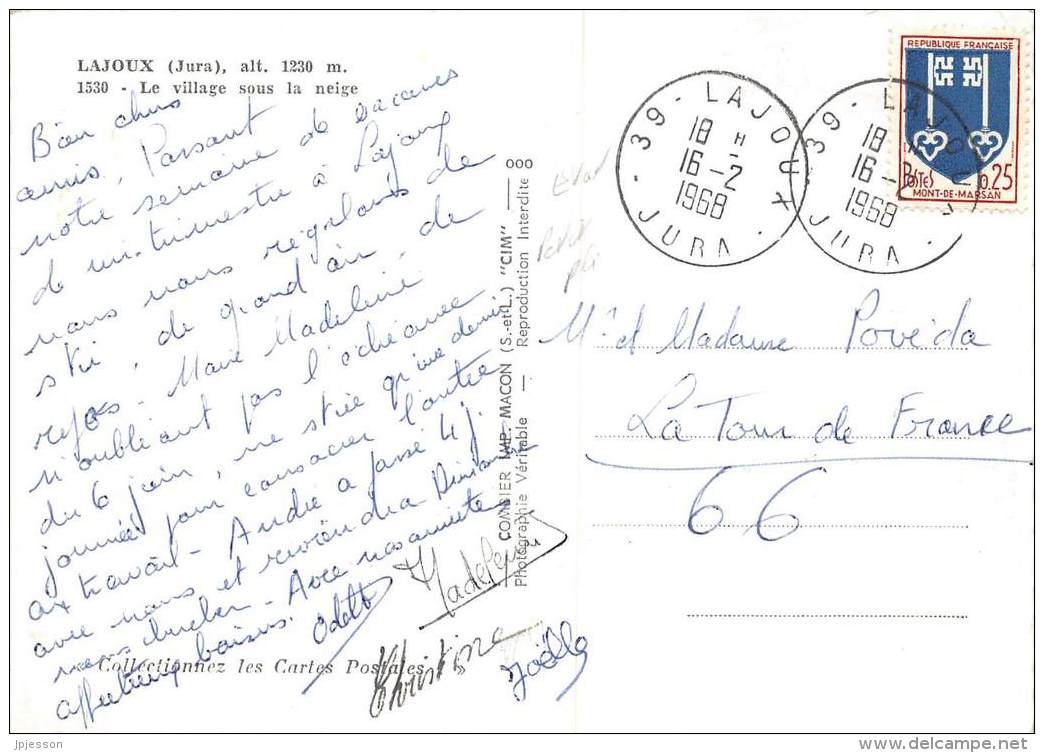 LAJOUX (Jura), alt. 1230 m.
1530 - Le village sous la neige
Bien chers
amis, Passant
notre semaine de vacances
de mi-trimestre à Lajoux
nous nous régalons de
ski, de grand air, de
repos - Marie Madeleine
n'oubliant pas l'échéance
du 6 juin, ne skiée qu'une demie
journée pour consacrer l'autre
au travail - André a passé 4 j.
avec nous et reviendra Dimanche
nous chercher - Avec nos amitiés
affectueux baisers. Odette
Madeleine
Christine
Joëlle
" Collectionnez les Cartes Postales "
COMBIER IMP. MACON (S.-et-L.) "CIM"
Photographie Véritable — Reproduction Interdite
ooo
39 - LAJOUX
18 H
16 - 2
1968
JURA
39 - LAJOUX
18 H
16 - 2
1968
JURA
REPUBLIQUE FRANÇAISE
POSTES 0,25
MONT-DE-MARSAN
Mr et Madame Povéda
La Tour de France
66
jpjesson
www.delcampe.net